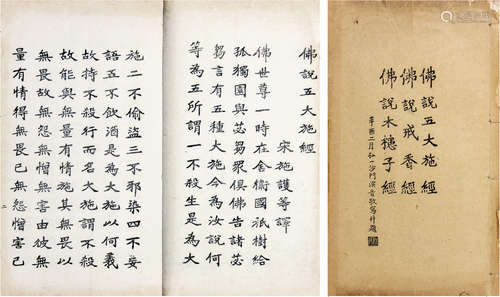 佛說五大施經
佛說戒香經
佛說木槵子經
辛酉二月弘一沙門演音敬寫并題
佛說五大施經
宋施護等譯
佛世尊一時在舍衛國祇樹給
孤獨園與苾芻眾俱佛告諸苾
芻言有五種大施今為汝說何
等為五所謂一不殺生是為大
施二不偷盜三不邪染四不妄
語五不飲酒是為大施以何義
故持不殺行而名大施謂不殺
故能與無量有情施其無畏以
無畏故無怨無憎無害由彼無
量有情得無畏已無怨憎害已
二